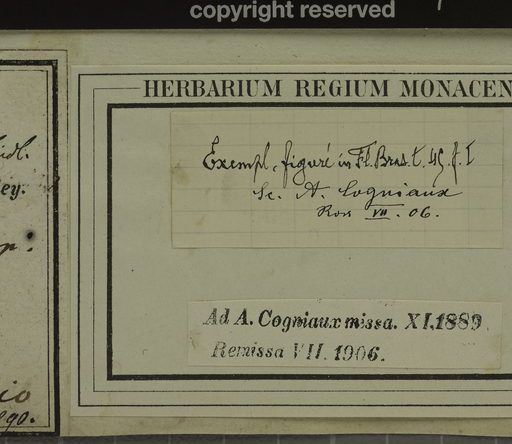 copyright reserved
HERBARIUM REGIUM MONACEN
Exempl. figuré in Fl. Bras. t. 45 f. I
Sc. A. Cogniaux
VII. 06.
Ad A. Cogniaux missa. XI.1889
Remissa VII. 1906.
ey.
io
890.